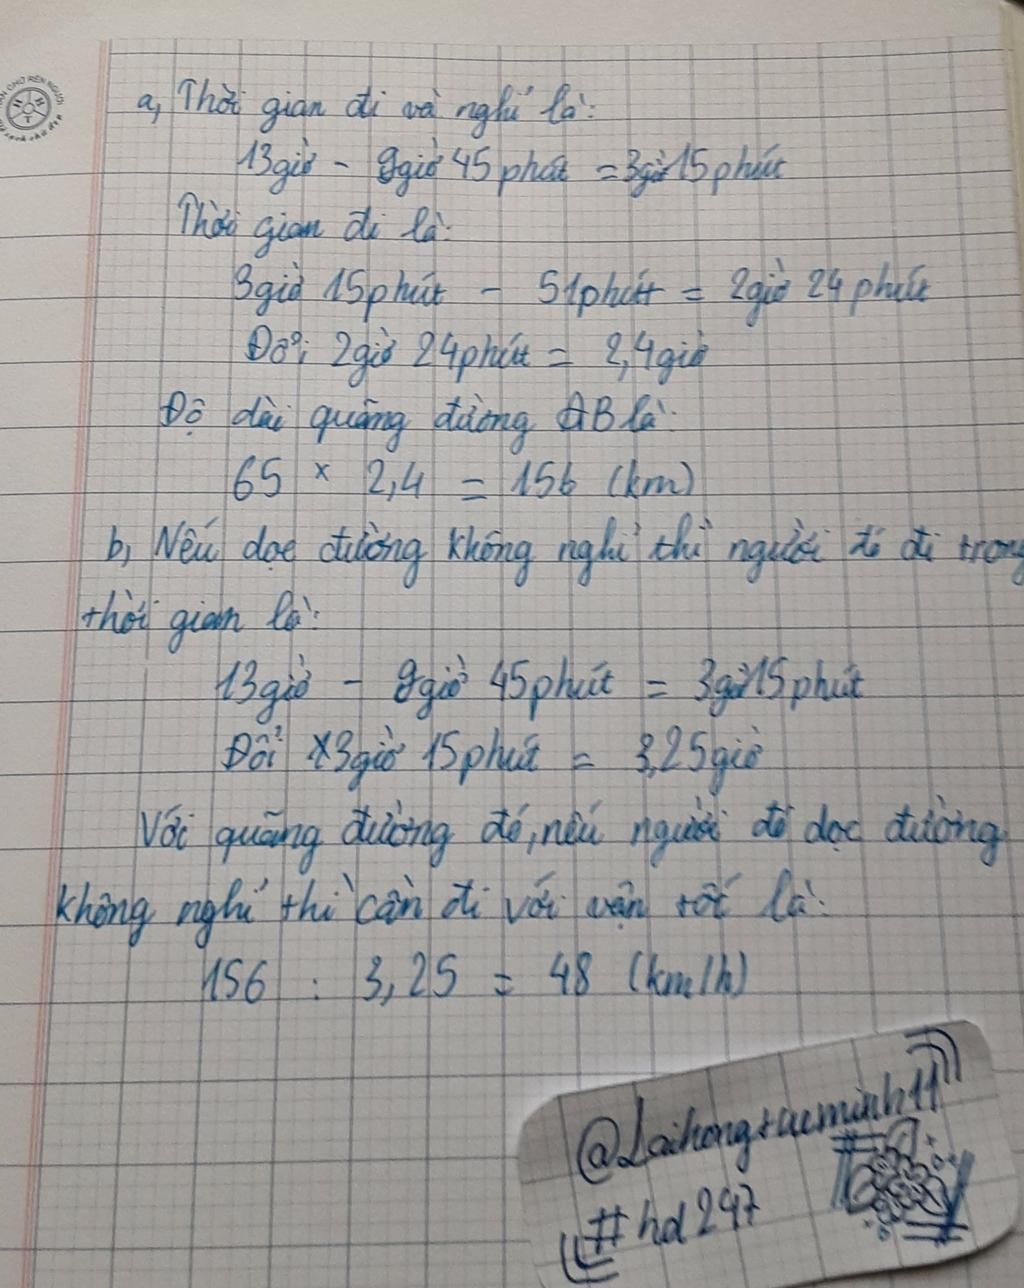 a, Thời gian đi và nghỉ là:
13giờ - 9giờ 45 phút = 3giờ 15 phút
Thời gian đi là:
3giờ 15phút - 51phút = 2giờ 24 phút
Đổi 2giờ 24phút = 2,4giờ
Độ dài quãng đường AB là:
65 × 2,4 = 156 (km)
b, Nếu dọc đường không nghỉ thì người đó đi trong
thời gian là:
13giờ - 9giờ 45phút = 3giờ 15phút
Đổi 3giờ 15phút = 3,25giờ
Với quãng đường đó, nếu người đó dọc đường
không nghỉ thì cần đi với vận tốc là:
156 : 3,25 = 48 (km/h)
#hd247